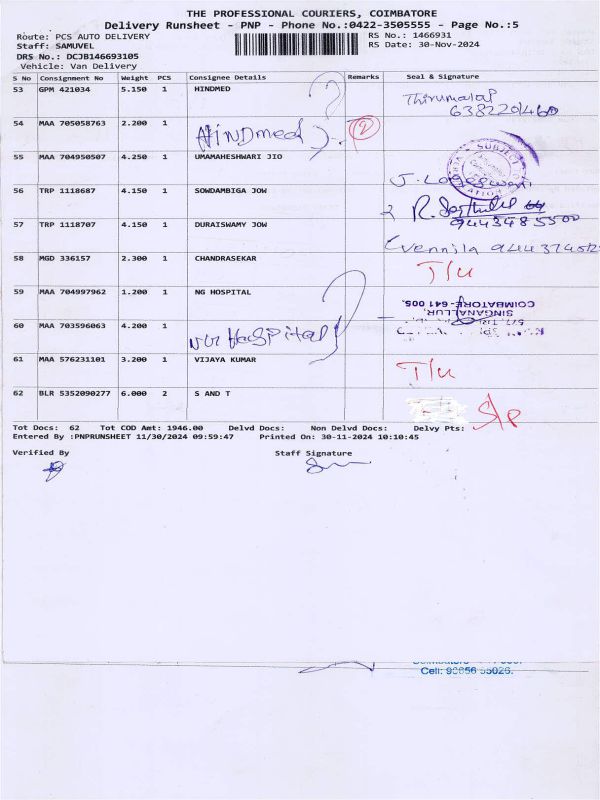 THE PROFESSIONAL COURIERS, COIMBATORE
Delivery Runsheet - PNP - Phone No.:0422-3505555 - Page No.:5
Route: PCS AUTO DELIVERY
RS No.: 1466931
Staff: SAMUVEL
RS Date: 30-Nov-2024
DRS No.: DCJB146693105
Vehicle: Van Delivery
S No Consignment No Weight PCS Consignee Details Remarks Seal & Signature
53 GPM 421034 5.150 1 HINDMED
Thirumalai
6382201460
54 MAA 705058763 2.200 1 HINDmed
2
55 MAA 704950507 4.250 1 UMAMAHESHWARI JIO
SUBJECT
56 TRP 1118687 4.150 1 SOWDAMBIGA JOW
57 TRP 1118707 4.150 1 DURAISWAMY JOW
9443485500
Vennila
58 MGD 336157 2.300 1 CHANDRASEKAR
T/u
59 MAA 704997962 1.200 1 NG HOSPITAL
SINGANALLUR,
COIMBATORE-641 005.
60 MAA 703596063 4.200 1 Hospital
61 MAA 576231101 3.200 1 VIJAYA KUMAR
T/u
62 BLR 5352090277 6.000 2 S AND T
S/p
Tot Docs: 62 Tot COD Amt: 1946.00 Delvd Docs: Non Delvd Docs: Delvy Pts:
Entered By :PNPRUNSHEET 11/30/2024 09:59:47 Printed On: 30-11-2024 10:10:45
Verified By
Staff Signature